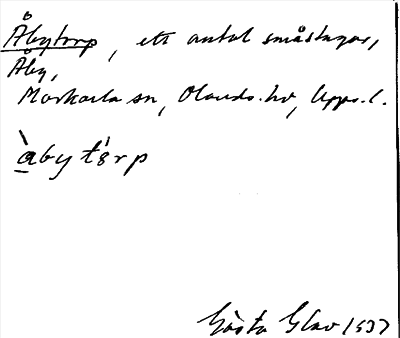 Åbytorp, ett antal småstugor,
Åby,
Morkarla sn, Olands hd, Upps. l.
àbytå̀rp
Gösta Glav 1937